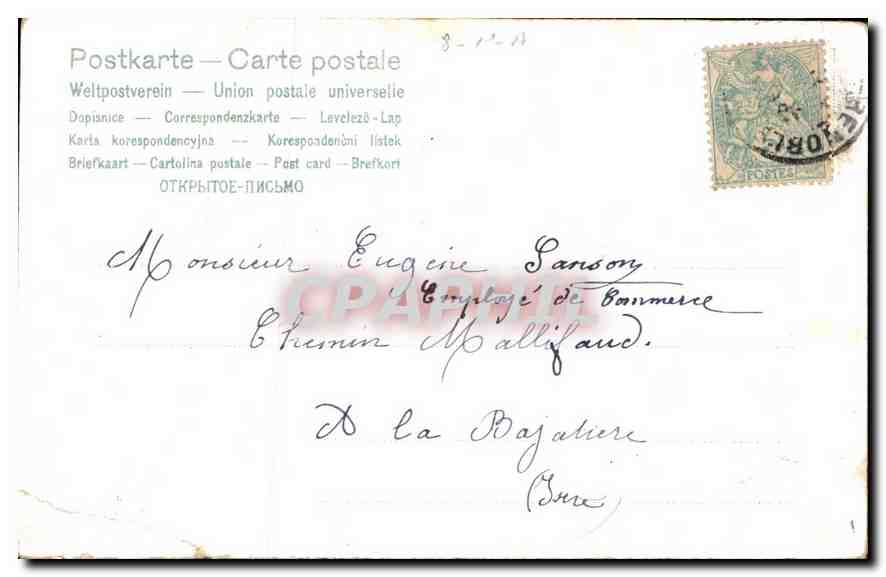 Postkarte — Carte postale
Weltpostverein — Union postale universelle
Dopisnice — Correspondenzkarte — Levelező-Lap
Karta korespondencyjna — Korespondenční lístek
Briefkaart — Cartolina postale — Post card — Brefkort
ОТКРЫТОЕ-ПИСЬМО
POSTES
Monsieur Eugène Sanson
Employé de Commerce
CPAPHIL
Chemin Mallifaud.
A la Bajatière
(Isère)